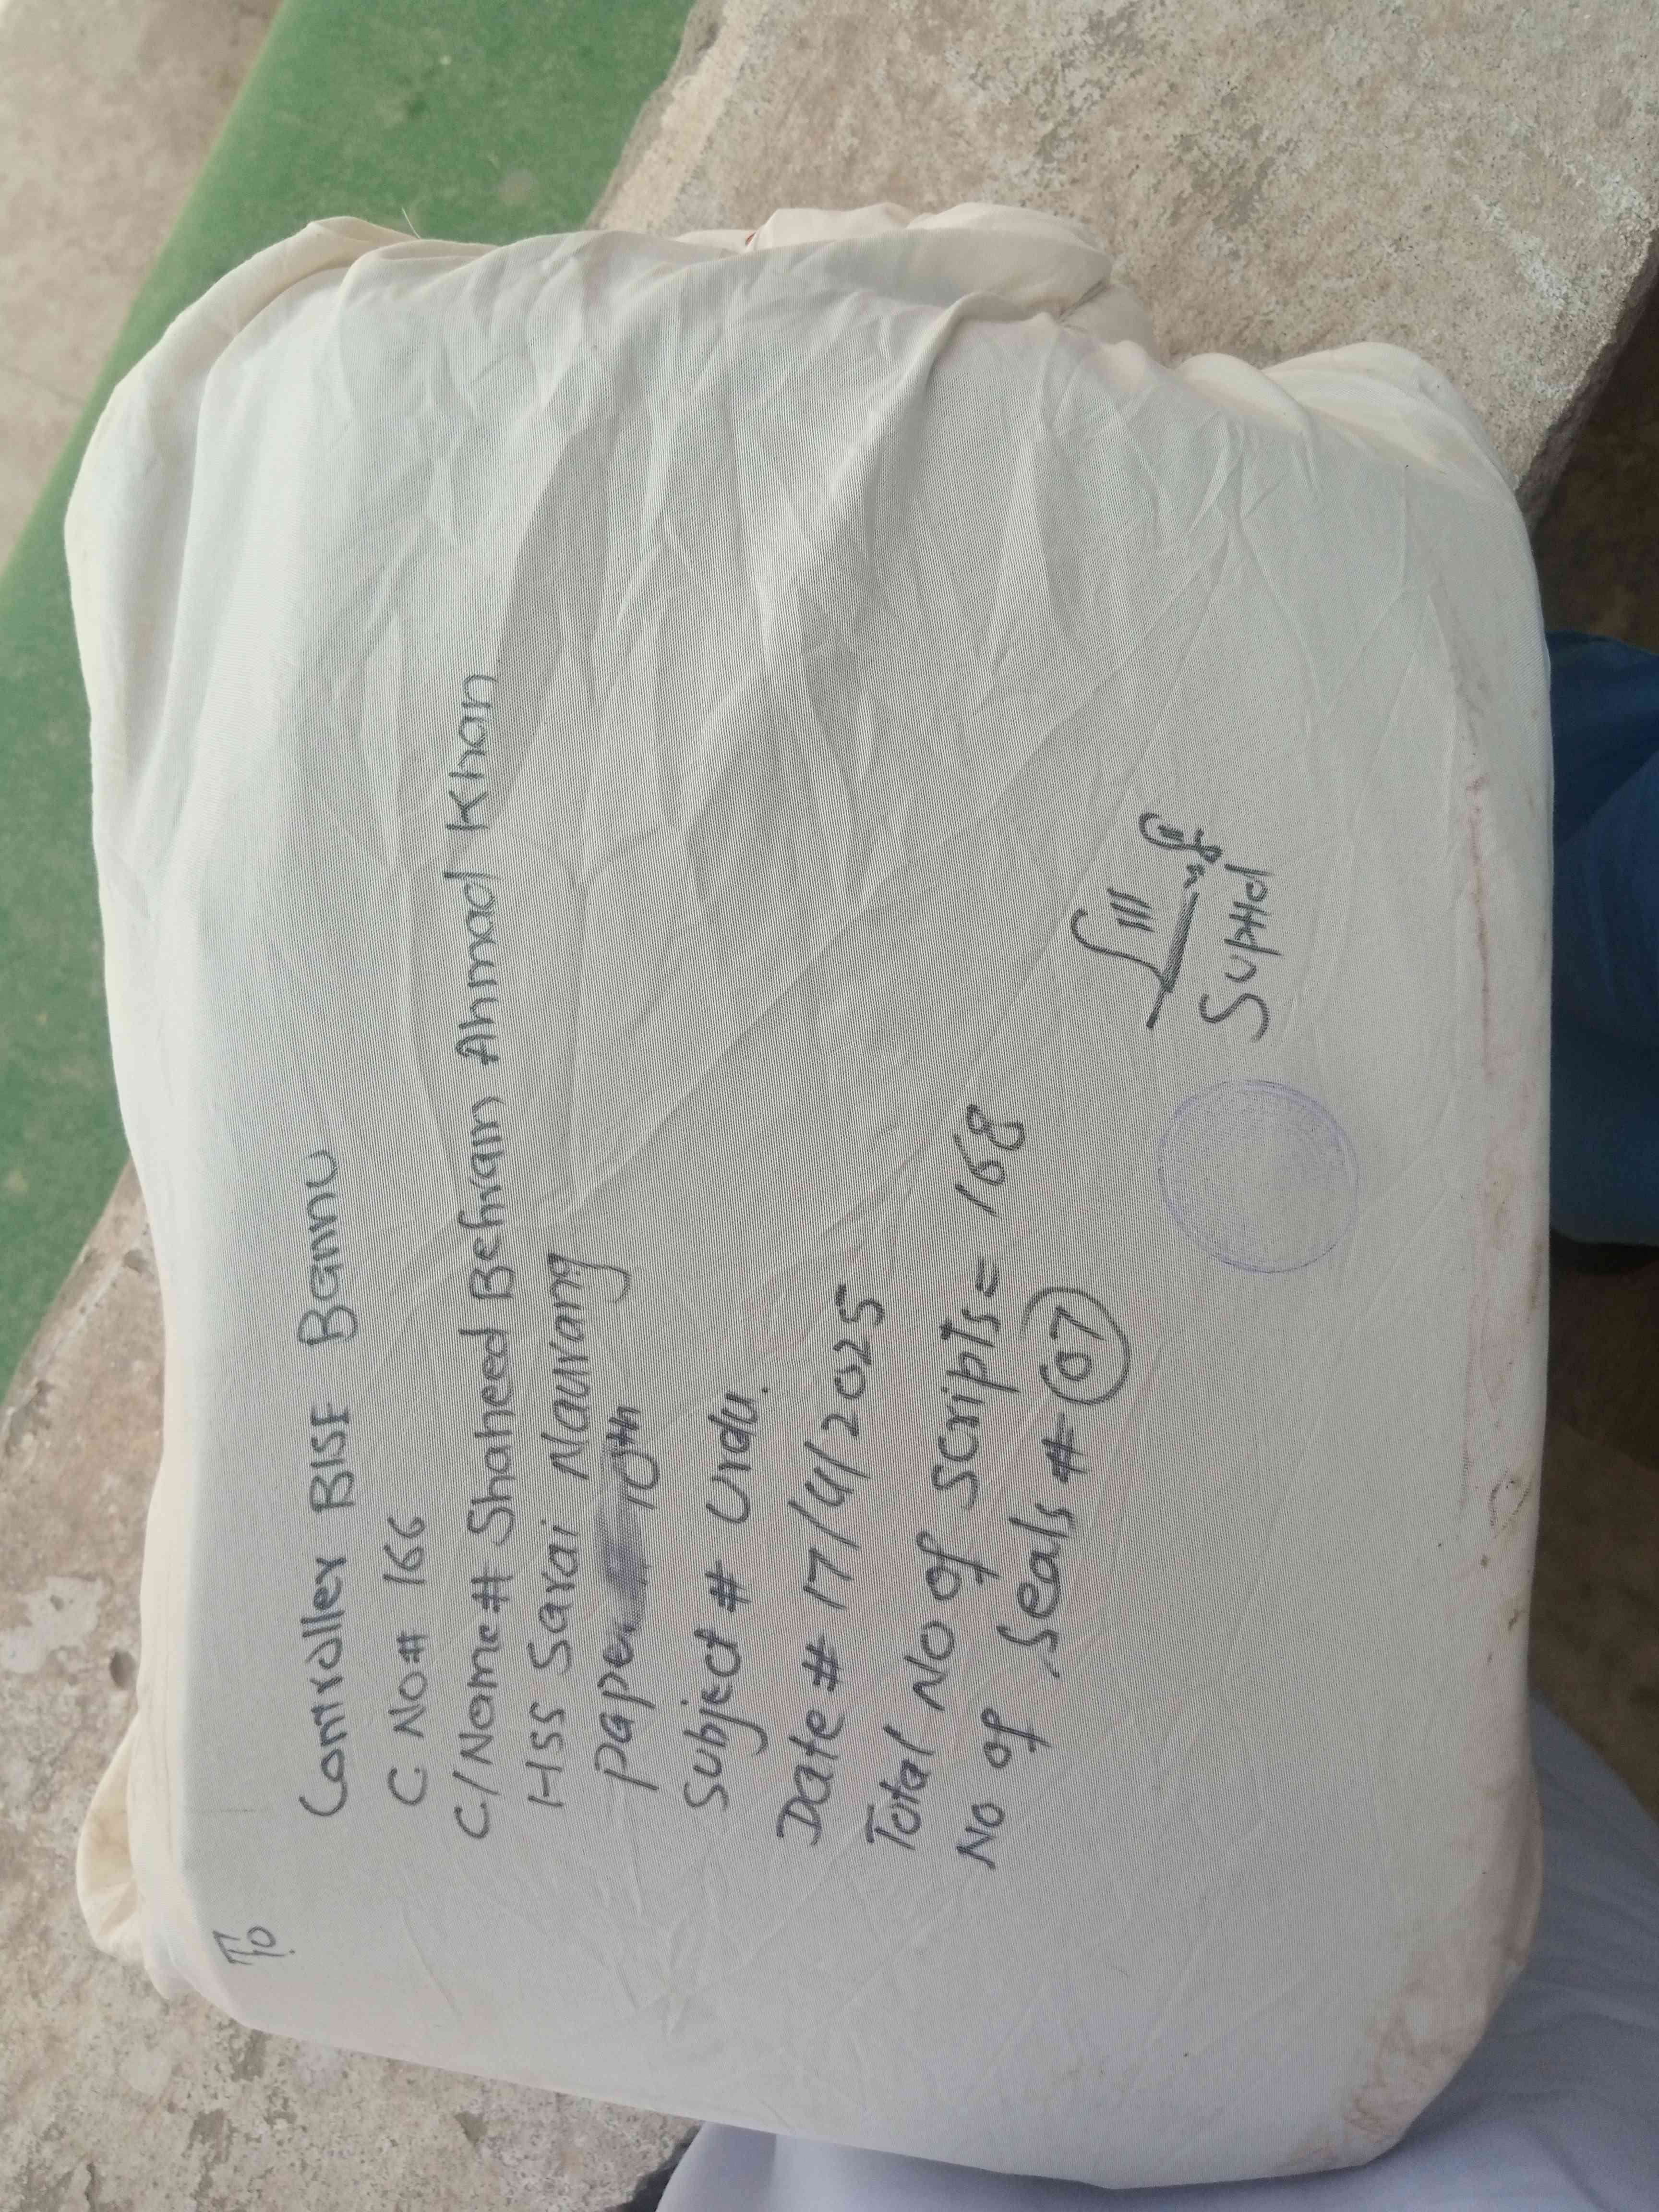 To
Controller BISE Bannu
C No# 166
C/Name# Shaheed Behram Ahmad Khan
HSS Sarai Naurang
Paper 10th
Subject # Urdu.
Date # 17/4/2025
Total No of Scripts = 168
No of Seals # 07
Suptd